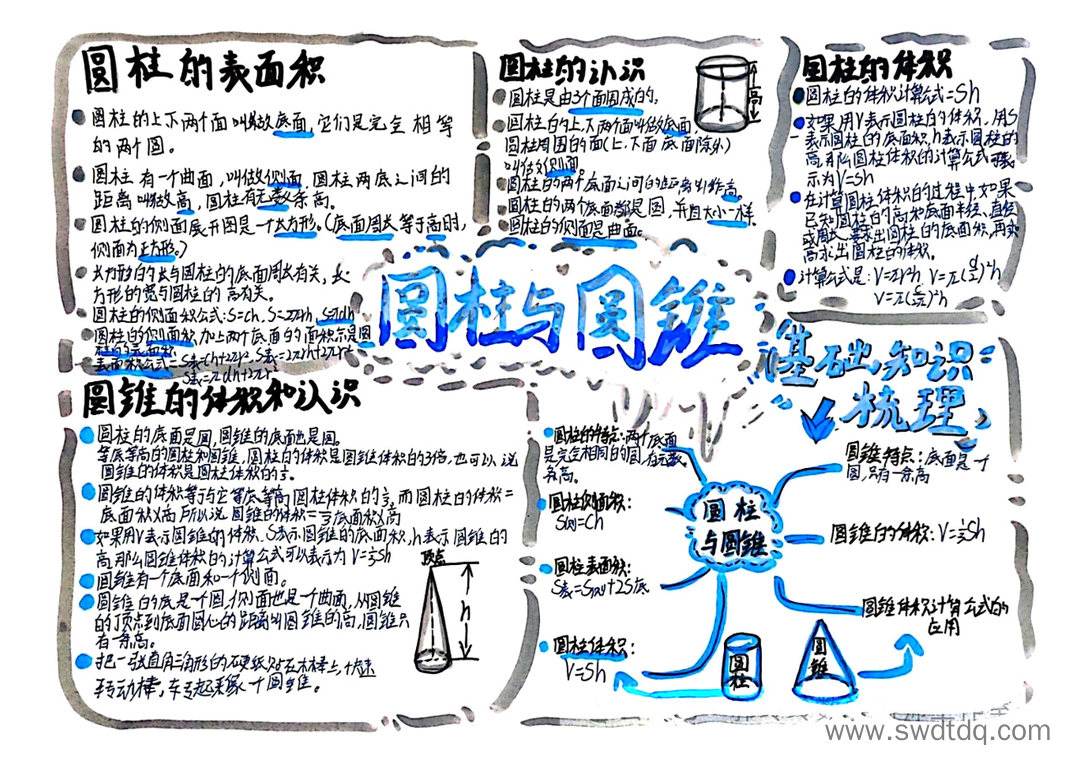 圆柱的表面积
圆柱的上下两个面叫做底面,它们是完全相等
的两个圆。
圆柱有一个曲面,叫做侧面,圆柱两底之间的
距离叫做高,圆柱有无数条高。
圆柱的侧面展开图是一个长方形。(底面周长等于高时,
侧面为正方形。)
长方形的长与圆柱的底面周长有关,长
方形的宽与圆柱的高有关。
圆柱的侧面积公式:S=ch,S=2πrh,S=πdh
圆柱的侧面积加上两个底面的面积就是圆
柱的表面积
表面积公式=S表=ch+2πr²,S表=2πrh+2πr²
圆柱的认识
圆柱是由3个面围成的。
圆柱的上、下两个面叫做底面
圆柱周围的面(上、下面底面除外)
叫做侧面
圆柱的两个底面之间的距离叫作高
圆柱的两个底面都是圆,并且大小一样
圆柱的侧面是曲面。
高
圆柱的体积
圆柱的体积计算公式=Sh
如果用V表示圆柱的体积,用S
表示圆柱的底面积,h表示圆柱的
高,那么圆柱体积的计算公式可表
示为V=Sh
在计算圆柱体积的过程中如果
已知圆柱的高和底面半径、直径
或周长,要求出圆柱的底面积,再乘
高求出圆柱的体积。
计算公式是:V=πr²h V=π(d/2)²h
V=π(c/2π)²h
圆柱与圆锥
基础知识
梳理
圆锥的体积和认识
圆柱的底面是圆,圆锥的底面也是圆。
等底等高的圆柱和圆锥,圆柱的体积是圆锥体积的3倍,也可以说
圆锥的体积是圆柱体积的⅓。
圆锥的体积等于与它等底等高圆柱体积的⅓,而圆柱的体积=
底面积×高所以说圆锥的体积=⅓底面积×高
如果用V表示圆锥的体积,S表示圆锥的底面积,h表示圆锥的
高,那么圆锥体积的计算公式可以表示为V=⅓Sh
圆锥有一个底面和一个侧面。
圆锥的底是一个圆,侧面也是一个曲面,从圆锥
的顶点到底面圆心的距离叫圆锥的高,圆锥只
有一条高。
把一张直角三角形的硬纸贴在木棒上,快速
转动棒,转起来像一个圆锥。
顶点
h
圆柱的特点:两个底面
是完全相同的圆,有无数
条高。
圆柱侧面积:
S侧=Ch
圆柱表面积:
S表=S侧+2S底
圆柱体积:
V=Sh
圆柱
与圆锥
圆锥特点:底面是一个
圆,只有一条高
圆锥的体积:V=⅓Sh
圆锥体积计算公式的
应用
圆柱
圆锥
www.swdtdq.com